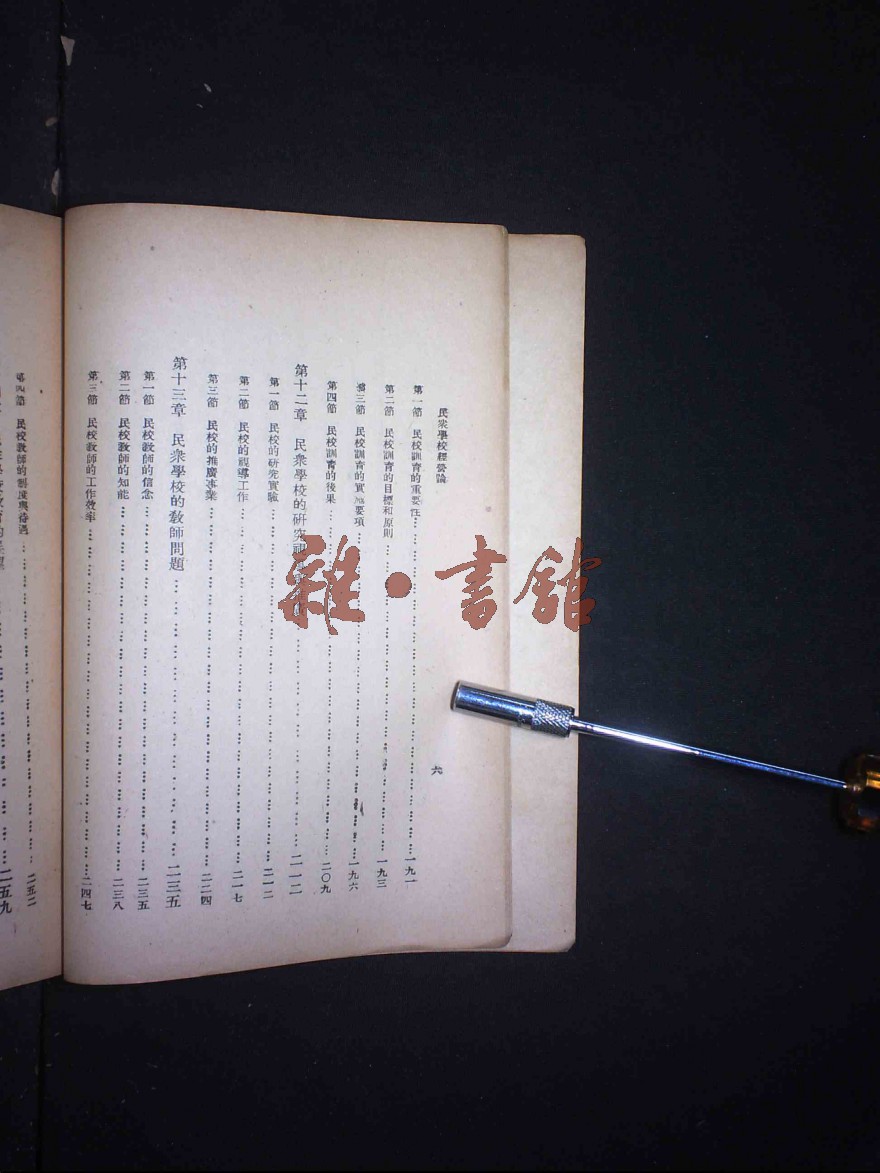 民衆學校經營論
六
第一節　民校訓育的重要性……一九一
第二節　民校訓育的目標和原則……一九三
第三節　民校訓育的實施要項……一九六
第四節　民校訓育的後果……二〇九
第十二章　民衆學校的研究視……二一二
第一節　民校的研究實驗……二一二
第二節　民校的視導工作……二一七
第三節　民校的推廣事業……二二四
第十三章　民衆學校的敎師問題……二三五
第一節　民校敎師的信念……二三五
第二節　民校敎師的知能……二三八
第三節　民校敎師的工作效率……二四七
第四節　民校敎師的制度與待遇……二五二
二五九
雜·書館